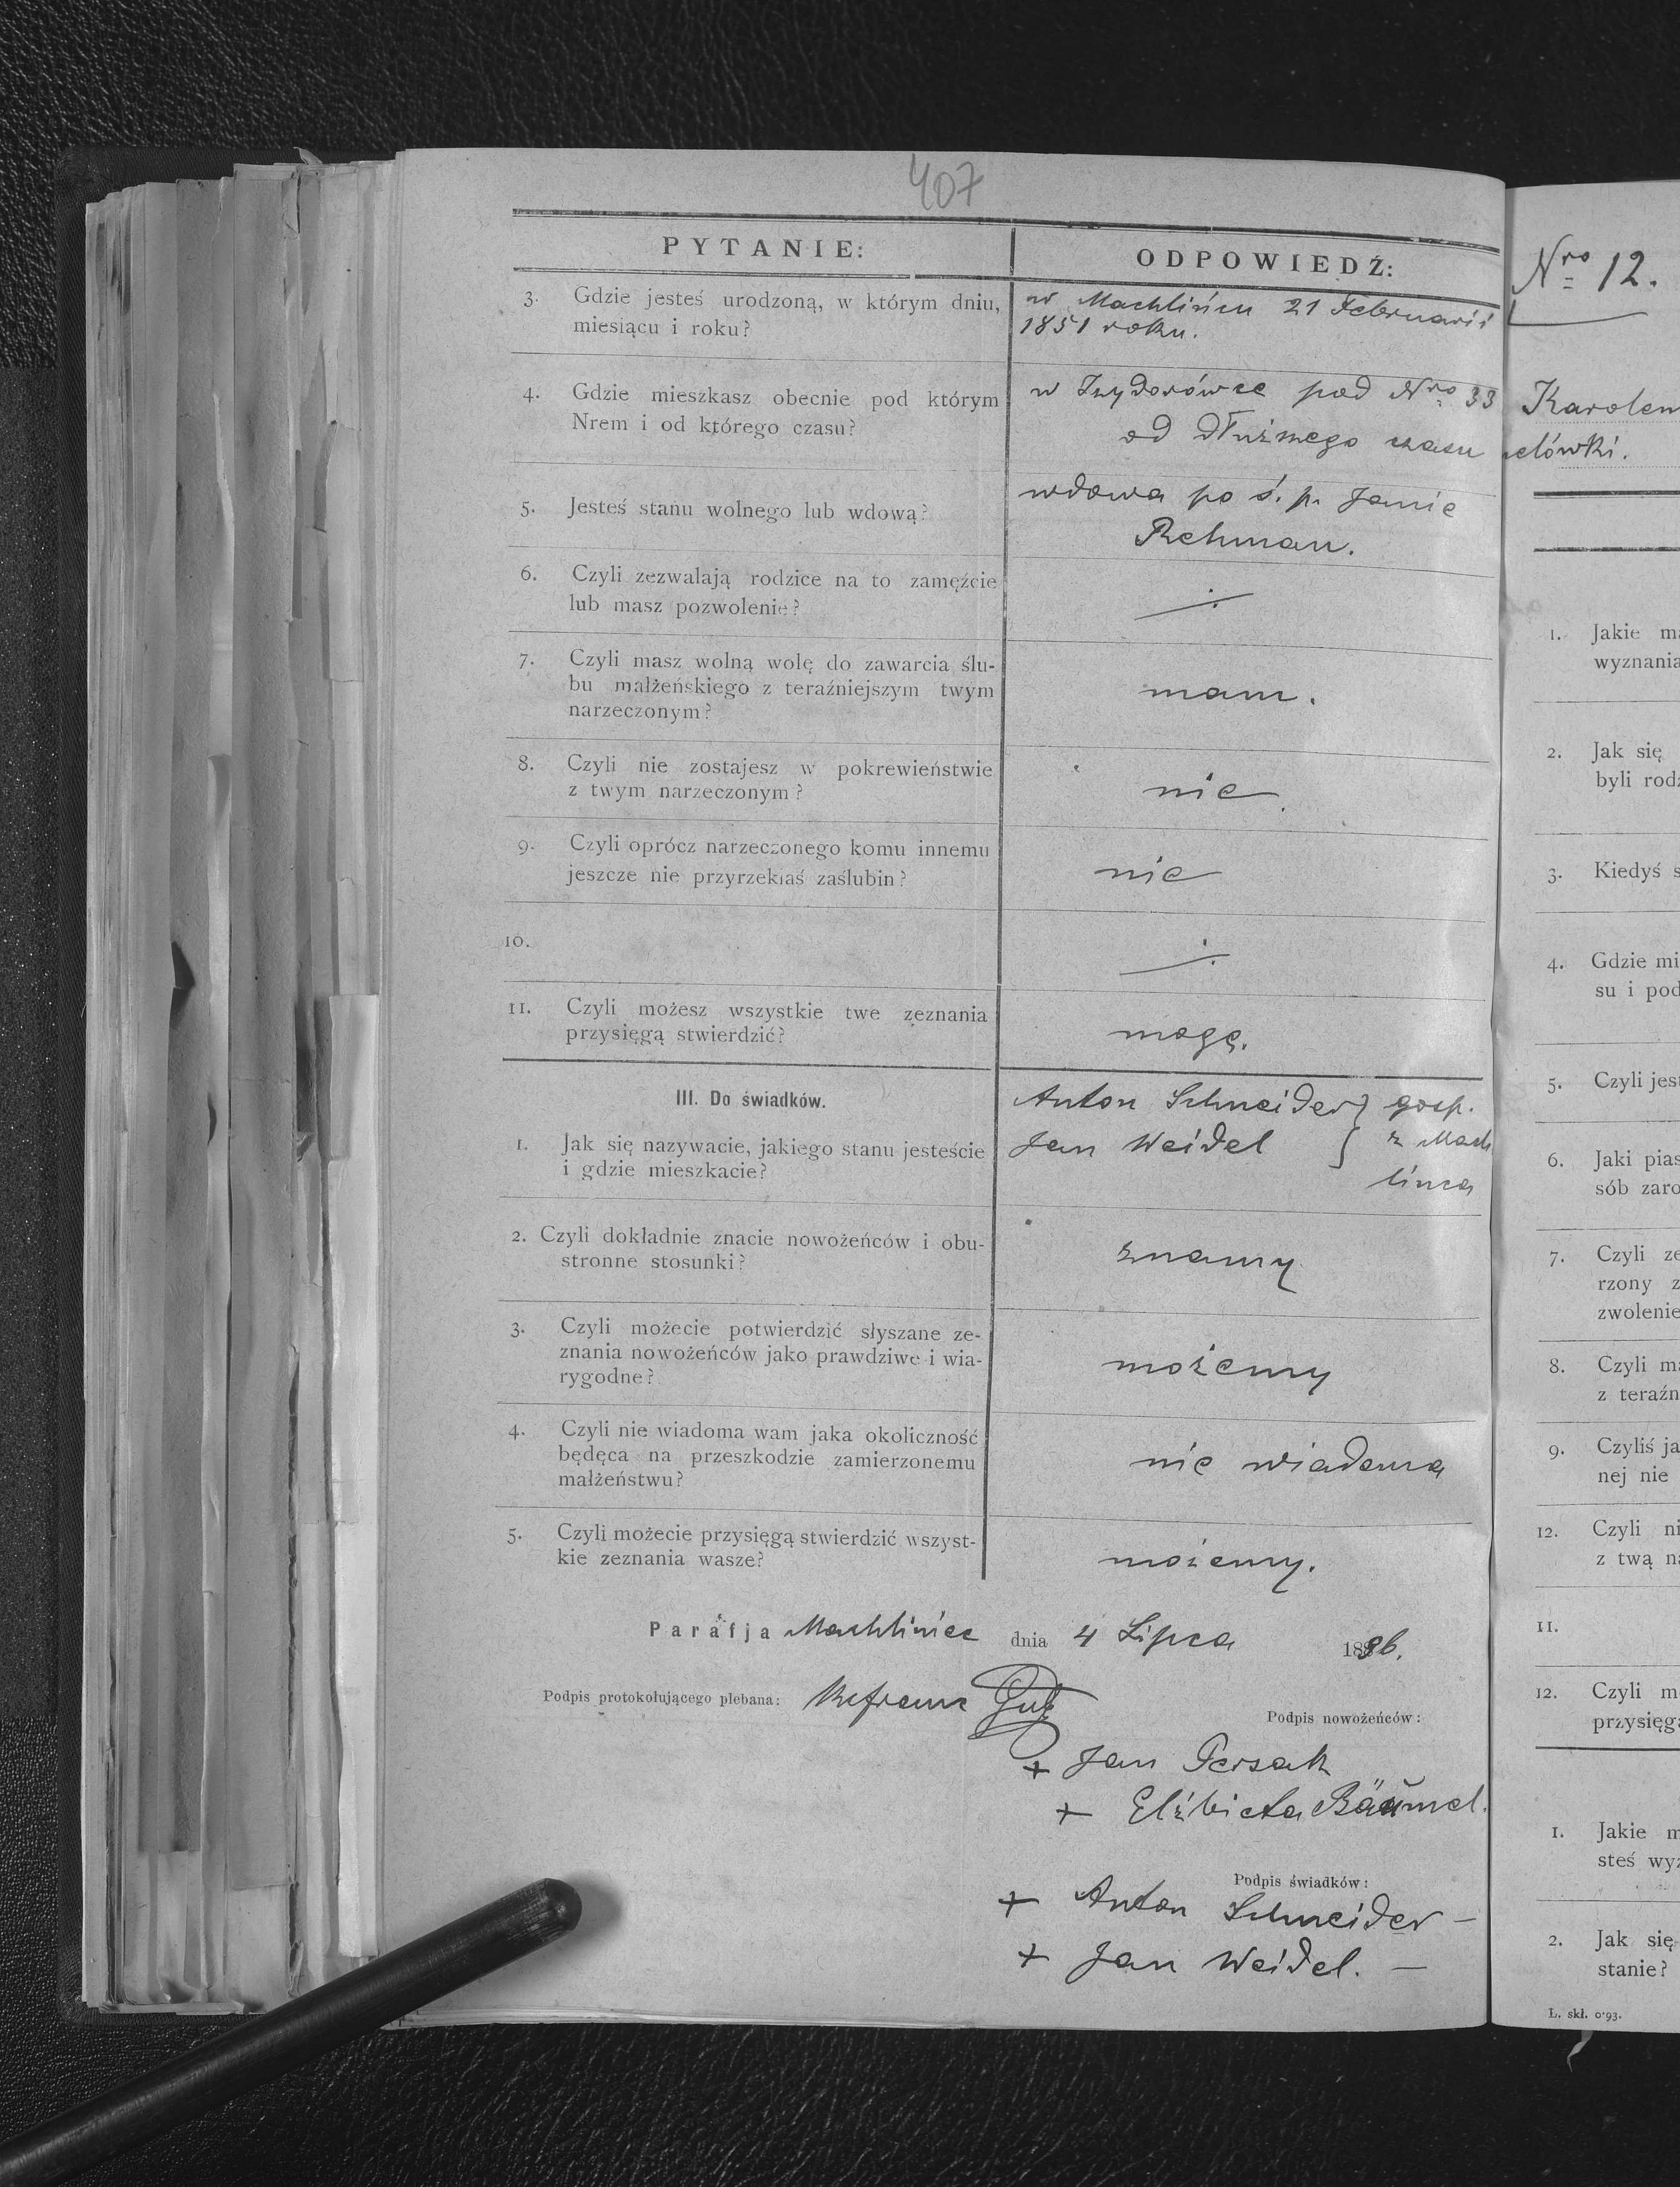 407
PYTANIE:
ODPOWIEDŹ:
3. Gdzie jesteś urodzoną, w którym dniu,
miesiącu i roku?
w Machlińcu 21 Februarii
1851 roku.
4. Gdzie mieszkasz obecnie pod którym
Nrem i od którego czasu?
w Izydorówce pod Nro 33
od dłuższego czasu
5. Jesteś stanu wolnego lub wdową?
wdowa po ś. p. Janie
Rehman.
6. Czyli zezwalają rodzice na to zamęźcie
lub masz pozwolenie?
7. Czyli masz wolną wolę do zawarcia ślu-
bu małżeńskiego z teraźniejszym twym
narzeczonym?
mam.
8. Czyli nie zostajesz w pokrewieństwie
z twym narzeczonym?
nie
9. Czyli oprócz narzeczonego komu innemu
jeszcze nie przyrzekłaś zaślubin?
nie
10.
11. Czyli możesz wszystkie twe zeznania
przysięgą stwierdzić?
mogę.
III. Do świadków.
1. Jak się nazywacie, jakiego stanu jesteście
i gdzie mieszkacie?
Anton Schneider } gosp.
Jan Weidel } z Mach
lińca
2. Czyli dokładnie znacie nowożeńców i obu-
stronne stosunki?
znamy
3. Czyli możecie potwierdzić słyszane ze-
znania nowożeńców jako prawdziwe i wia-
rygodne?
możemy
4. Czyli nie wiadoma wam jaka okoliczność
będęca na przeszkodzie zamierzonemu
małżeństwu?
nie wiadoma
5. Czyli możecie przysięgą stwierdzić wszyst-
kie zeznania wasze?
możemy.
Parafja Machliniec dnia 4 Lipca 1896.
Podpis protokołującego plebana:
Podpis nowożeńców:
+ Jan Persak
+ Elżbieta Bäumel.
Podpis świadków:
+ Anton Schneider —
+ Jan Weidel. —
Nro 12.
Karolem
1. Jakie ma
wyznania
2. Jak się
byli rodz
3. Kiedyś s
4. Gdzie mi
su i pod
5. Czyli jest
6. Jaki pias
sób zaro
7. Czyli ze
rzony z
zwolenie
8. Czyli ma
z teraźn
9. Czyliś ja
nej nie
12. Czyli ni
z twą na
11.
12. Czyli m
przysięgą
1. Jakie m
steś wyz
2. Jak się
stanie?
L. skł. 0·93.